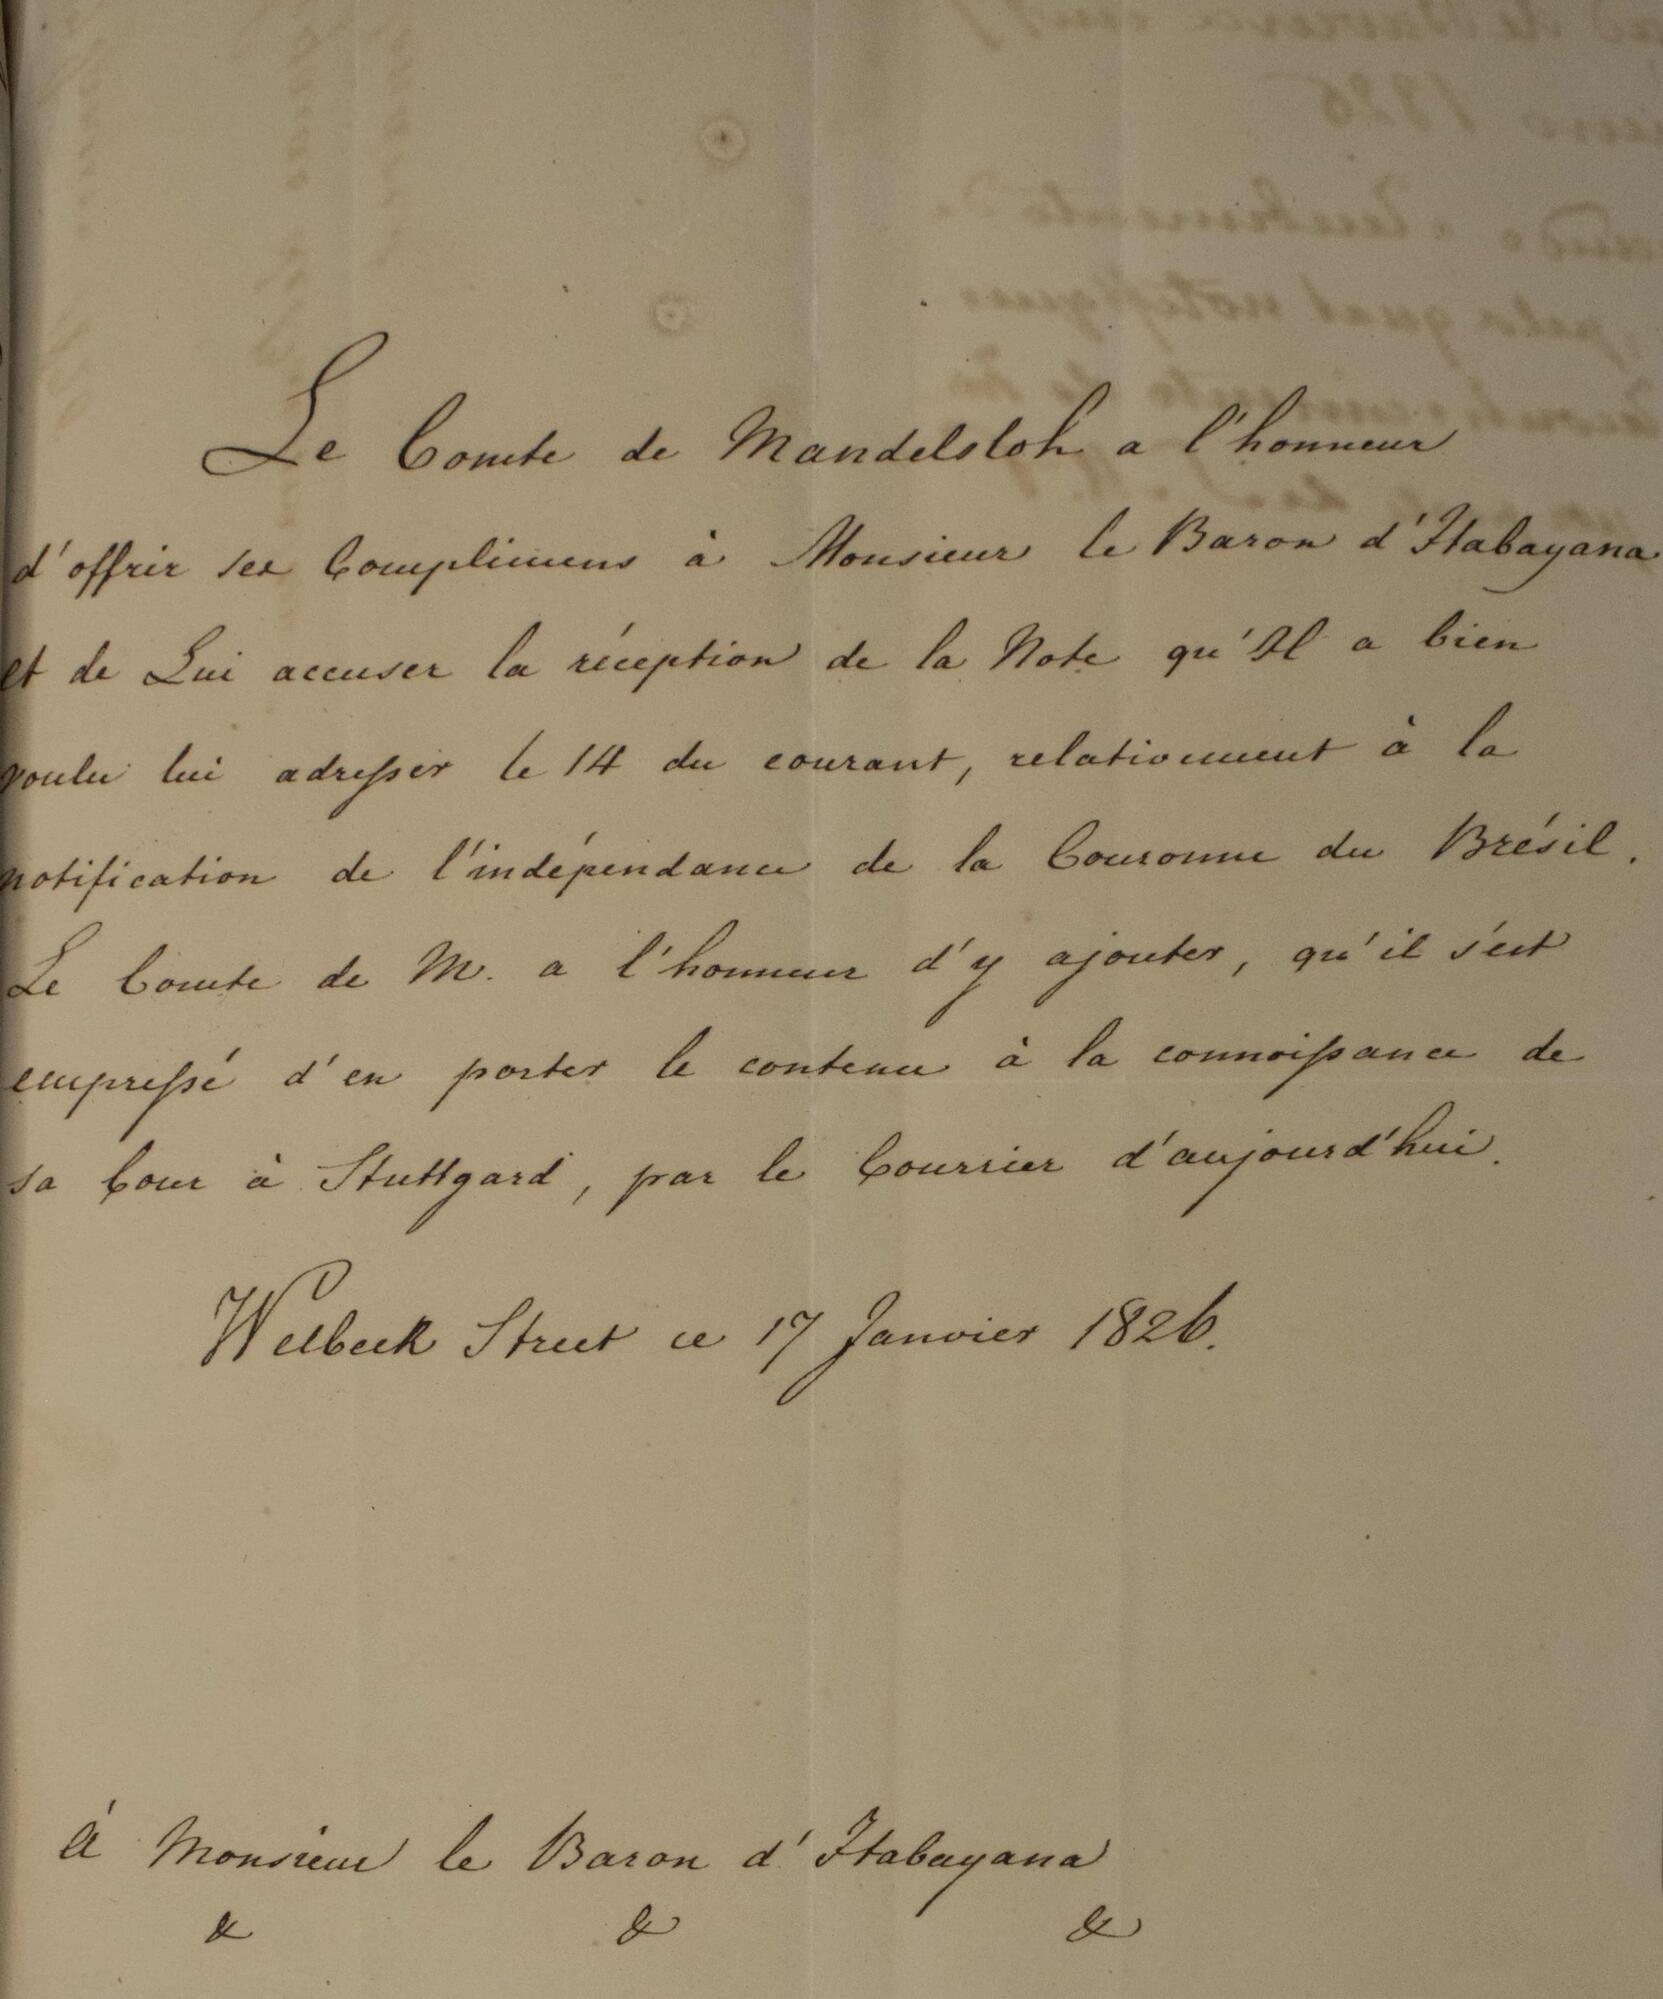 Le Comte de Mandelsloh a l'honneur
d'offrir ses Complimens à Monsieur le Baron d'Itabayana
et de Lui accuser la réception de la Note qu'Il a bien
voulu lui adresser le 14 du courant, relativement à la
notification de l'indépendance de la Couronne du Brésil.
Le Comte de M. a l'honneur d'y ajouter, qu'il s'est
empressé d'en porter le contenu à la connoissance de
sa Cour à Stuttgard, par le Courrier d'aujourd'hui.
Welbeck Street ce 17 Janvier 1826.
À Monsieur le Baron d'Itabayana
& & &